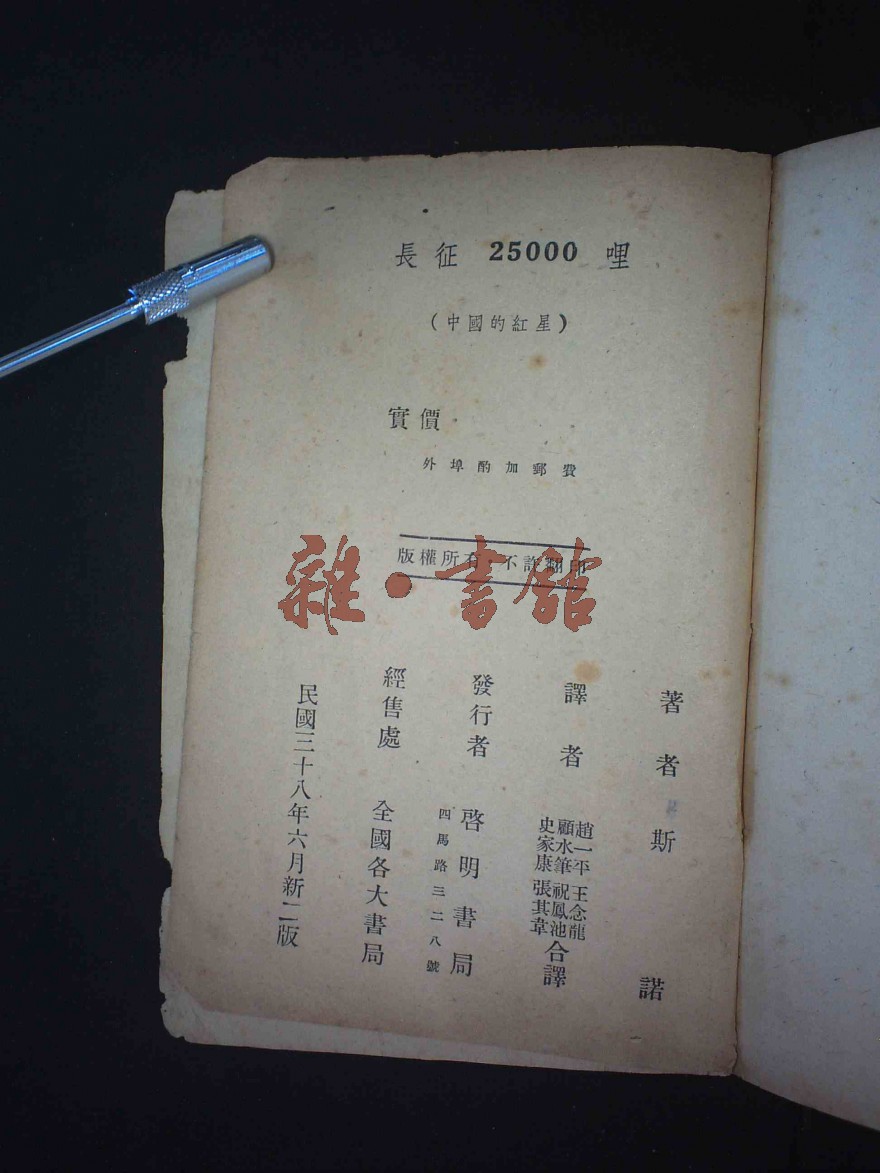 長征 25000 哩
(中國的紅星)
實價
外埠酌加郵費
版權所有·不許翻印
雜·書館
著者 斯諾
譯者 趙一平 王念龍
顧水筆 祝鳳池
史家康 張其韋
合譯
發行者 啓明書局
四馬路三二八號
經售處 全國各大書局
民國三十八年六月新二版